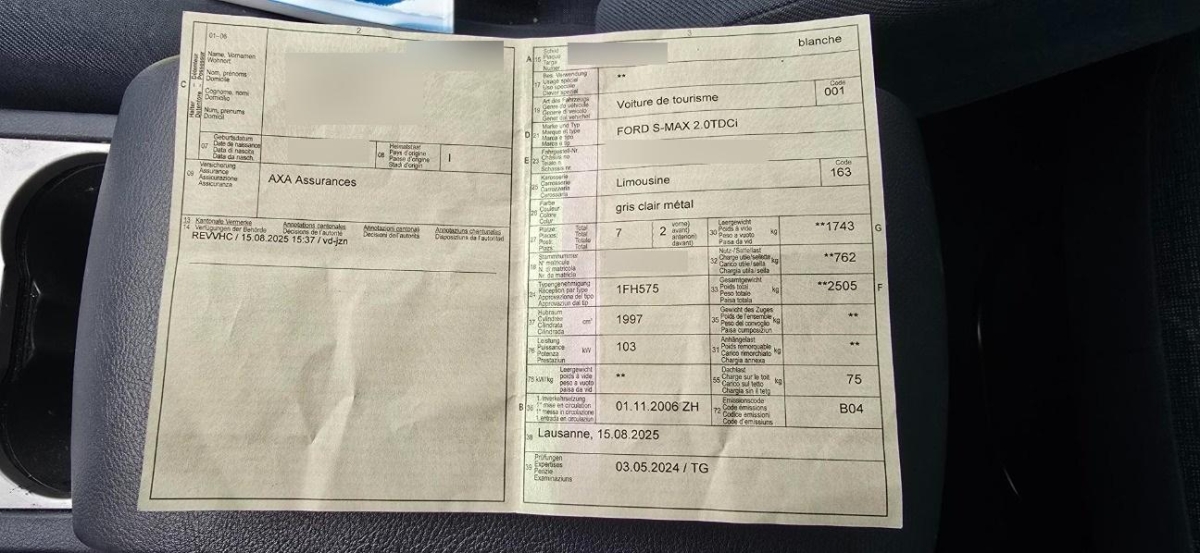 2
01-06
C
Halter
Détenteur
Detentore
Possessur
Name, Vornamen
Wohnort
Nom, prénoms
Domicile
Cognome, nomi
Domicilio
Num, prenums
Domicil
07
Geburtsdatum
Date de naissance
Data di nascita
Data da nasch.
08
Heimatstaat
Pays d'origine
Paese d'origine
Stadi d'origin
I
09
Versicherung
Assurance
Assicurazione
Assicuranza
AXA Assurances
13
14
Kantonale Vermerke
Verfügungen der Behörde
Annotations cantonales
Décisions de l'autorité
Annotazioni cantonali
Decisioni dell'autorità
Annotaziuns chantunalas
Disposiziuns da l'autoritad
REVVHC / 15.08.2025 15:37 / vd-jzn
3
A 15
Schild
Plaque
Targa
Numer
blanche
17
Bes. Verwendung
Usage spécial
Uso speciale
Diever spezial
**
19
Art des Fahrzeugs
Genre de véhicule
Genere di veicolo
Gener dal vehichel
Voiture de tourisme
Code
001
D 21
Marke und Typ
Marque et type
Marca e tipo
Marca e tip
FORD S-MAX 2.0TDCi
E 23
Fahrgestell-Nr.
Châssis no
Telaio n.
Schassis nr.
25
Karosserie
Carrosserie
Carrozzeria
Carossaria
Limousine
Code
163
26
Farbe
Couleur
Colore
Colur
gris clair métal
27
Plätze: Total
Places: Total
Posti: Totale
Plazs: Total
7
2
vorne)
avant)
anteriori)
davant)
30
Leergewicht
Poids à vide
Peso a vuoto
Paisa da vid
kg
**1743
G
18
Stammnummer
N° matricule
N. di matricola
Nr. da matricla
32
Nutz-/Sattellast
Charge utile/sellette
Carico utile/sella
Chargia utila/sella
kg
**762
24
Typengenehmigung
Réception par type
Approvazione del tipo
Approvaziun dal tip
1FH575
33
Gesamtgewicht
Poids total
Peso totale
Paisa totala
kg
**2505
F
37
Hubraum
Cylindrée
Cilindrata
Cilindrada
cm³
1997
35
Gewicht des Zuges
Poids de l'ensemble
Peso del convoglio
Paisa cumposiziun
kg
**
76
Leistung
Puissance
Potenza
Prestaziun
kW
103
31
Anhängelast
Poids remorquable
Carico rimorchiato
Chargia annexa
kg
**
78 kW/kg
Leergewicht
poids à vide
peso a vuoto
paisa da vid
**
55
Dachlast
Charge sur le toit
Carico sul tetto
Chargia sin il tetg
kg
75
B 36
1. Inverkehrsetzung
1re mise en circulation
1a messa in circolazione
1. entrada en circulaziun
01.11.2006 ZH
72
Emissionscode
Code émissions
Codice emissioni
Code d'emissiuns
B04
38
Lausanne, 15.08.2025
39
Prüfungen
Expertises
Perizie
Examinaziuns
03.05.2024 / TG